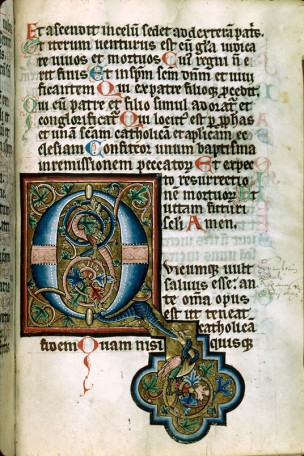 Et ascendit in celū sedet ad dexterā patr̄.
Et iterum venturus est cū gl̄a iudica
re uiuos et mortuos Cui⁹ regni n̄ e
rit finis Et in sp̄m scm̄ dn̄m et uiui
ficantem Qui ex patre filioq̨ p̱cedit.
Qui cū patre et filio simul adorat̄ et
conglorificat̄ Qui locut⁹ est p̱ p̱phas
et unā scam̄ catholicā et apl̄icam ec
clesiam Confiteor unum baptisma
in remissionem peccator̄ Et expec
to resurrectio
nē mortuor̄ Et
uitam futuri
scl̄i Amen.
Quicumq̨ uult
saluus esse: an
te om̄ia opus
est ut teneat
catholica
fidem Quam nisi quisq̨